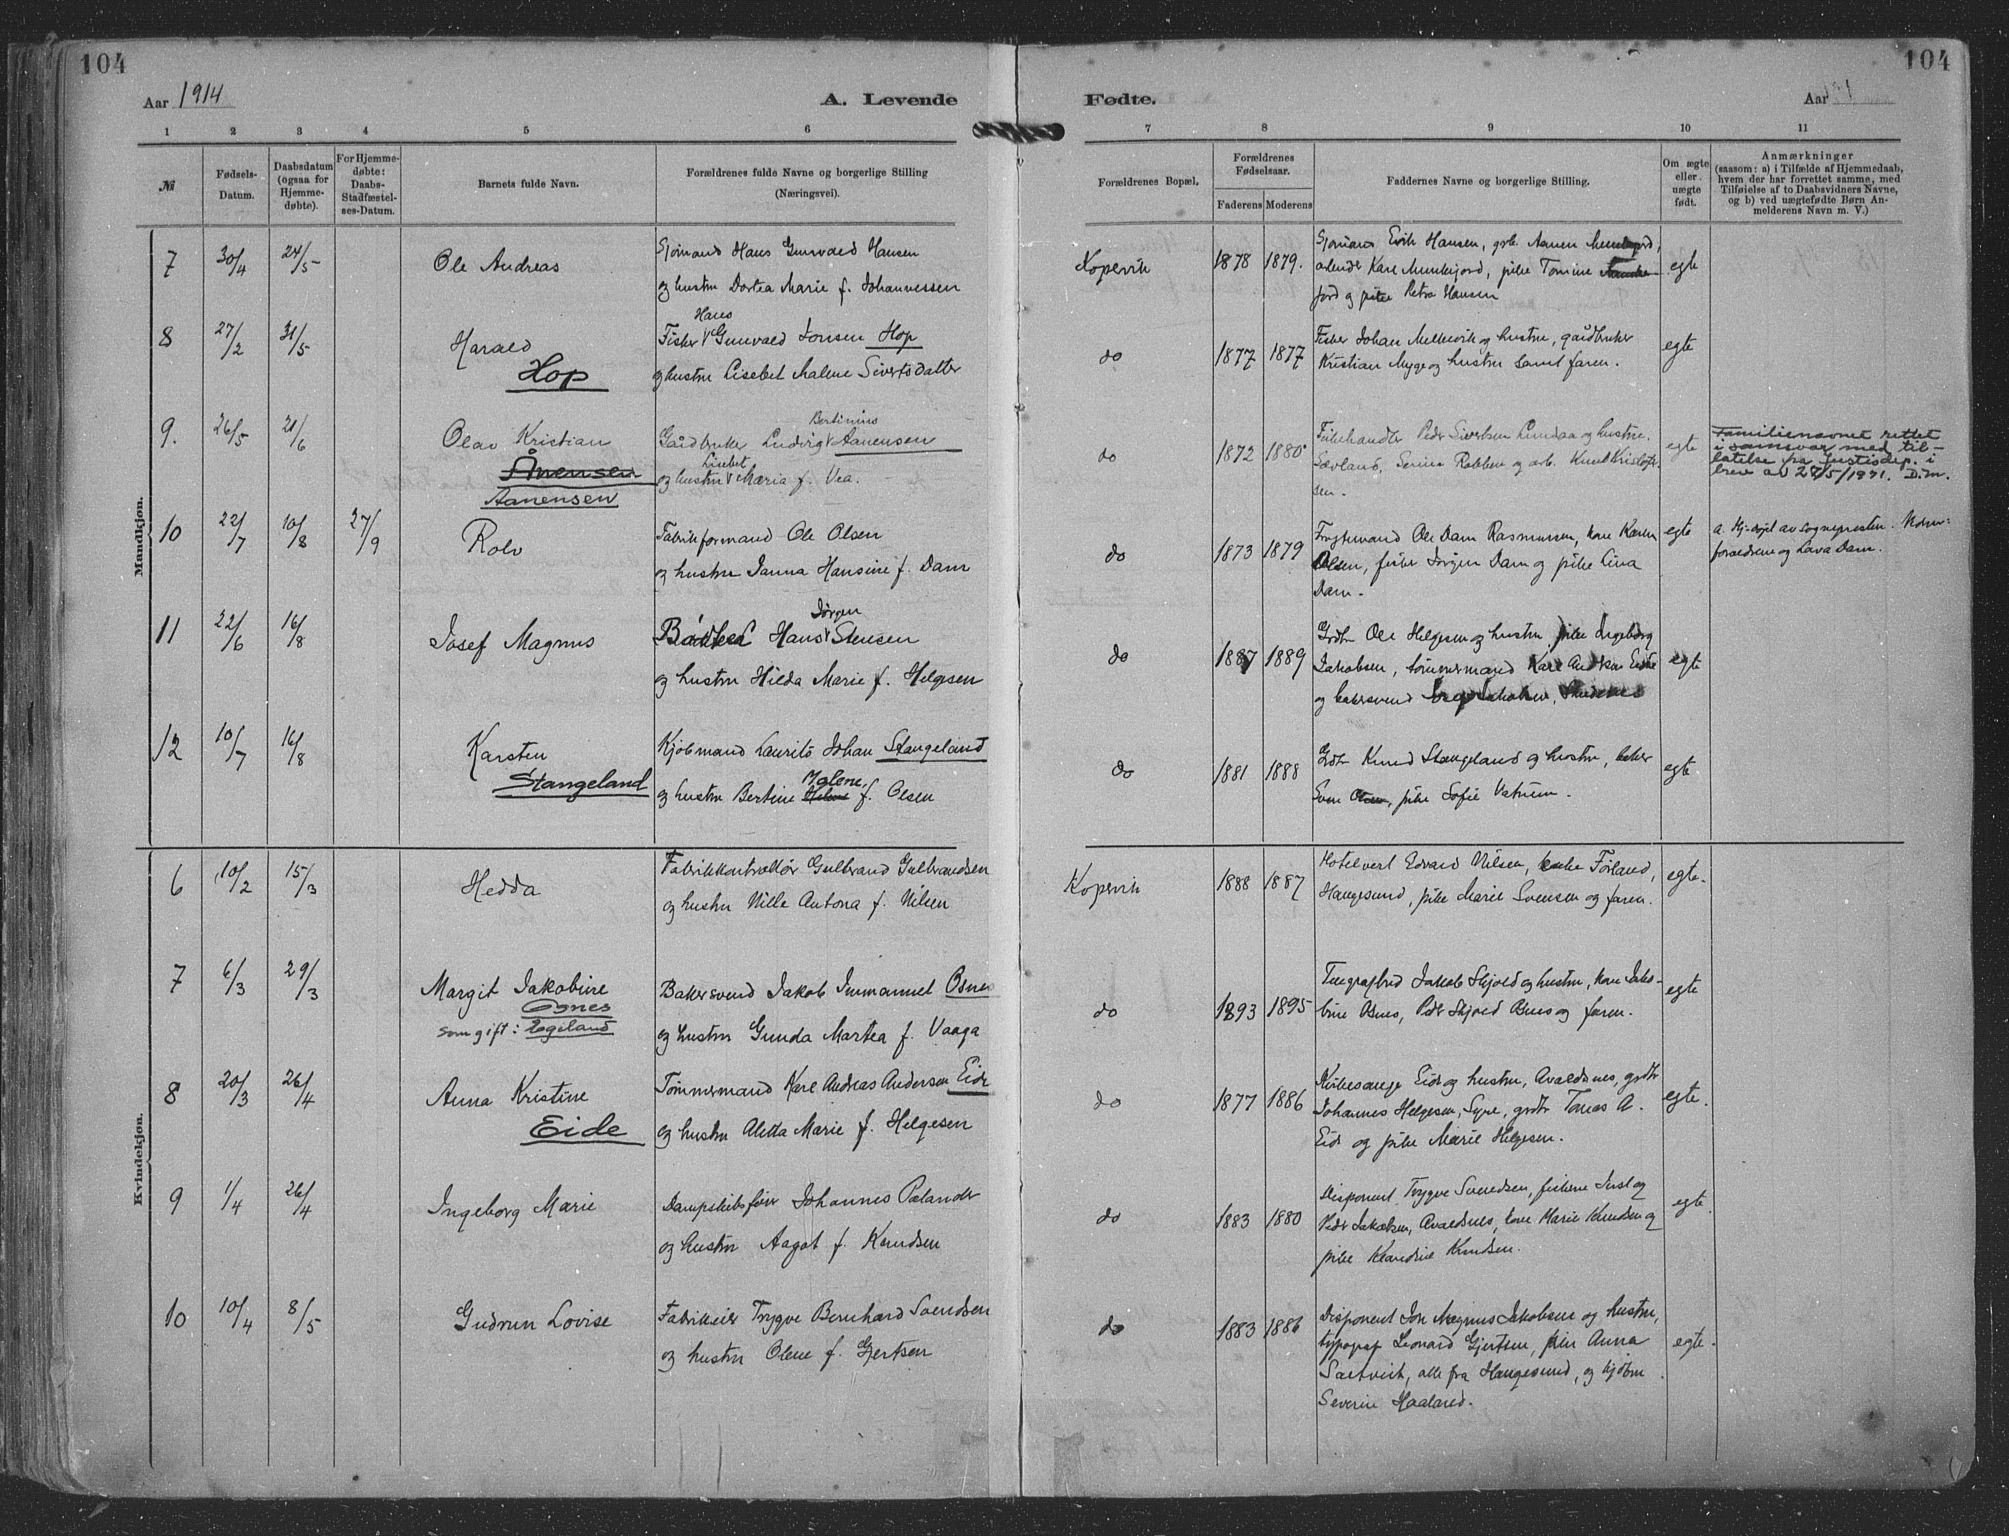 104
104
Aar 1914
A. Levende
Fødte.
Aar
1
2
3
4
5
6
7
8
9
10
11
№
Fødsels-
Datum.
Daabsdatum
(ogsaa for
Hjemme-
døbte).
For Hjemme-
døbte:
Daabs-
Stadfæstel-
ses-Datum.
Barnets fulde Navn.
Forældrenes fulde Navne og borgerlige Stilling
(Næringsvei).
Forældrenes Bopæl.
Forældrenes
Fødselsaar.
Faderens
Moderens
Faddernes Navne og borgerlige Stilling.
Om ægte
eller
uægte
født.
Anmærkninger
(saasom: a) i Tilfælde af Hjemmedaab,
hvem der har forrettet samme, med
Tilføielse af to Daabsvidners Navne,
og b) ved uægtefødte Børn An-
melderens Navn m. V.)
Mandkjøn.
7
30/4
24/5
Ole Andreas
Sjømand Hans Gunvald Hansen
og hustru Dortea Marie f. Johannessen
Kopervik
1878
1879.
Sjømand Erik Hansen, grb. Aanen Munkejord,
arbeider Karl Munkejord, pike Tomine Munke-
jord og pike Petra Hansen
egte
8
27/2
31/5
Harald
Hop
Hans
Fisker Gunvald Jonsen Hop
og hustru Lisebet Malene Sivertsdatter
do
1877
1877
Fisker Johan Mellevik og hustru, gaardbruker
Kristian Myge og hustru samt faren.
egte
9.
26/5
21/6
Olav Kristian
Ånensen
Aanensen
Bertinius
Gaardbruker Ludvig Aanensen
Lisebet
og hustru Maria f. Vea.
do
1872
1880
Fiskehandler Peder Sivertsen Lindaa og hustru,
Sævland, Serina Robben og arb. Knut Kristofer-
sen.
egte
Familienavnet rettet
i samsvar med til-
latelse fra Justisdep. i
brev av 27/5/1931. D.m.
10
22/7
10/8
27/9
Rolv
Fabrikformand Ole Olsen
og hustru Janna Hansine f. Dam
do
1873
1879
Fragtemand Ole Dam Rasmussen, kone Karen
Olsen, fisker Jørgen Dam og pike Lina
Dam.
egte
a. Hj.døpt av sognepresten.
foreldrene og Lava Dam.
11
22/6
16/8
Josef Magnus
Jørgen
Hans Stensen
og hustru Hilda Marie f. Helgesen
do
1887
1889
Grdbr Ole Helgesen og hustru pike Ingeborg
Jakobsen, tømmermand Karl Andreas Eide
og bakersvend
egte
12
10/7
16/8
Karsten
Stangeland
Kjøbmand Laurits Johan Stangeland
Malene,
og hustru Bertine Helene f. Olsen
do
1881
1888
Grdbr Knud Stangeland og hustru, baker
Sven Olsen, pike Sofie Vatnem.
egte
Kvindekjøn.
6
10/2
15/3
Hedda
Fabrikkontrollør Gulbrand Gulbrandsen
og hustru Nille Antona f. Nilsen
Kopervik
1888
1887
Hotelvert Edvard Nilsen, Førland,
Haugesund, pike Marie Svensen og faren.
egte.
7
6/3
29/3
Margit Jakobine
Osnes
som gift: Egeland
Bakersvend Jakob Immanuel Osnes
og hustru Gunda Martea f. Vaaga
do
1893
1895
Telegrafbud Jakob Skjold og hustru, kone Jako-
bine Osnes, Peder Skjold Osnes og faren.
egte
8
20/3
26/4
Anna Kristine
Eide
Tømmermand Karl Andreas Andersen Eide
og hustru Aletta Marie f. Helgesen
do
1877
1886
Kirkesanger Eide og hustru, Avaldsnes, grdbr
Johannes Helgesen, Syre, grdbr Tomas A.
Eide og pike Marie Helgesen.
egte.
9
1/4
26/4
Ingeborg Marie
Dampskibsfører Johannes Palander
og hustru Aagot f. Knudsen
do
1883
1880
Disponent Trygve Svendsen, fiskerne Just og
Peder Jakobsen, Avaldsnes, kone Marie Knudsen og
pike Klaudine Knudsen.
egte.
10
10/4
8/5
Gudrun Lovise
Fabrikeier Trygve Bernhard Svendsen
og hustru Olene f. Gjertsen
do
1883
1886
Disponent Jon Magnus Jakobsen og hustru,
typograf Leonard Gjertsen, pike Anna
Sartveit, alle fra Haugesund, og kjøbm
Severin Haaland.
egte.